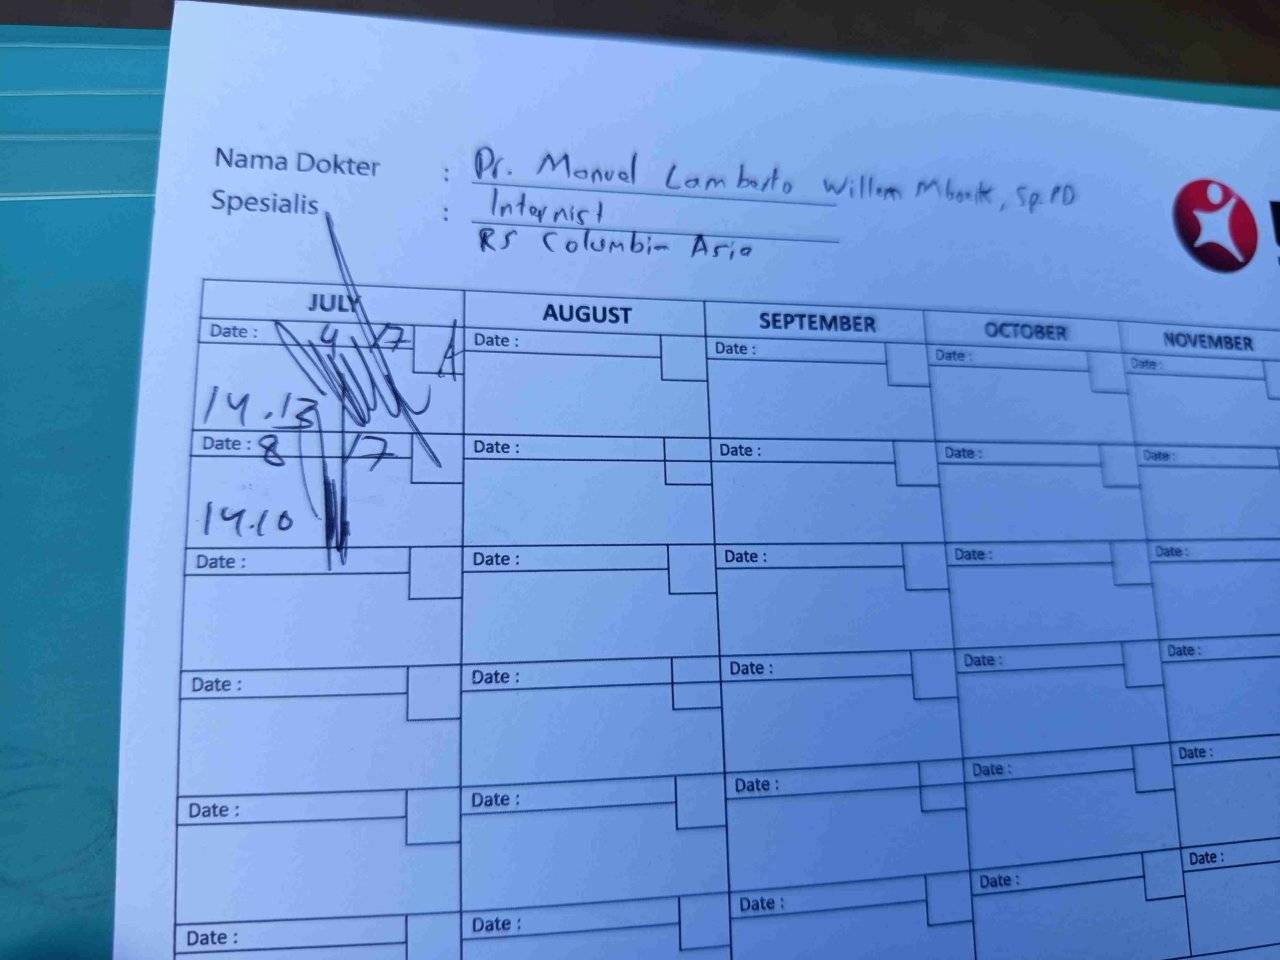 Nama Dokter : Dr. Manuel Lamberto Willem Mboeik, Sp.PD
Spesialis : Internist
RS Columbia Asia
JULY AUGUST SEPTEMBER OCTOBER NOVEMBER
Date : 4/7 A Date : Date : Date : Date :
14.13
Date : 8/7 Date : Date : Date : Date :
14.10
Date : Date : Date : Date : Date :
Date : Date : Date : Date : Date :
Date : Date : Date : Date : Date :
Date : Date : Date : Date : Date :